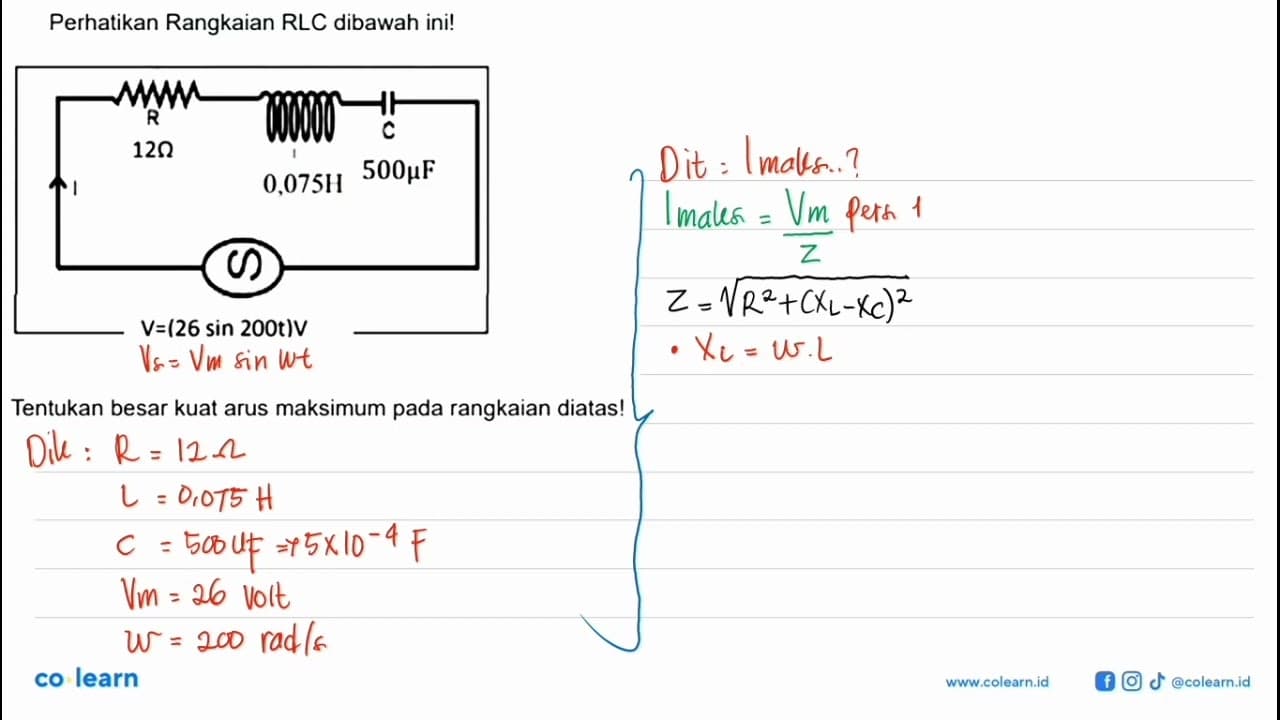 Perhatikan Rangkaian RLC dibawah ini!
R
12Ω
0,075H
C
500µF
I
S
V=(26 sin 200t)V
Vs = Vm sin wt
Tentukan besar kuat arus maksimum pada rangkaian diatas!
Dik : R = 12 Ω
L = 0,075 H
C = 500 µF => 5 x 10⁻⁴ F
Vm = 26 volt
W = 200 rad/s
Dit = Imaks..?
Imaks = Vm/Z Pers 1
Z = √R² + (XL - XC)²
• XL = W.L
co learn
www.colearn.id
@colearn.id